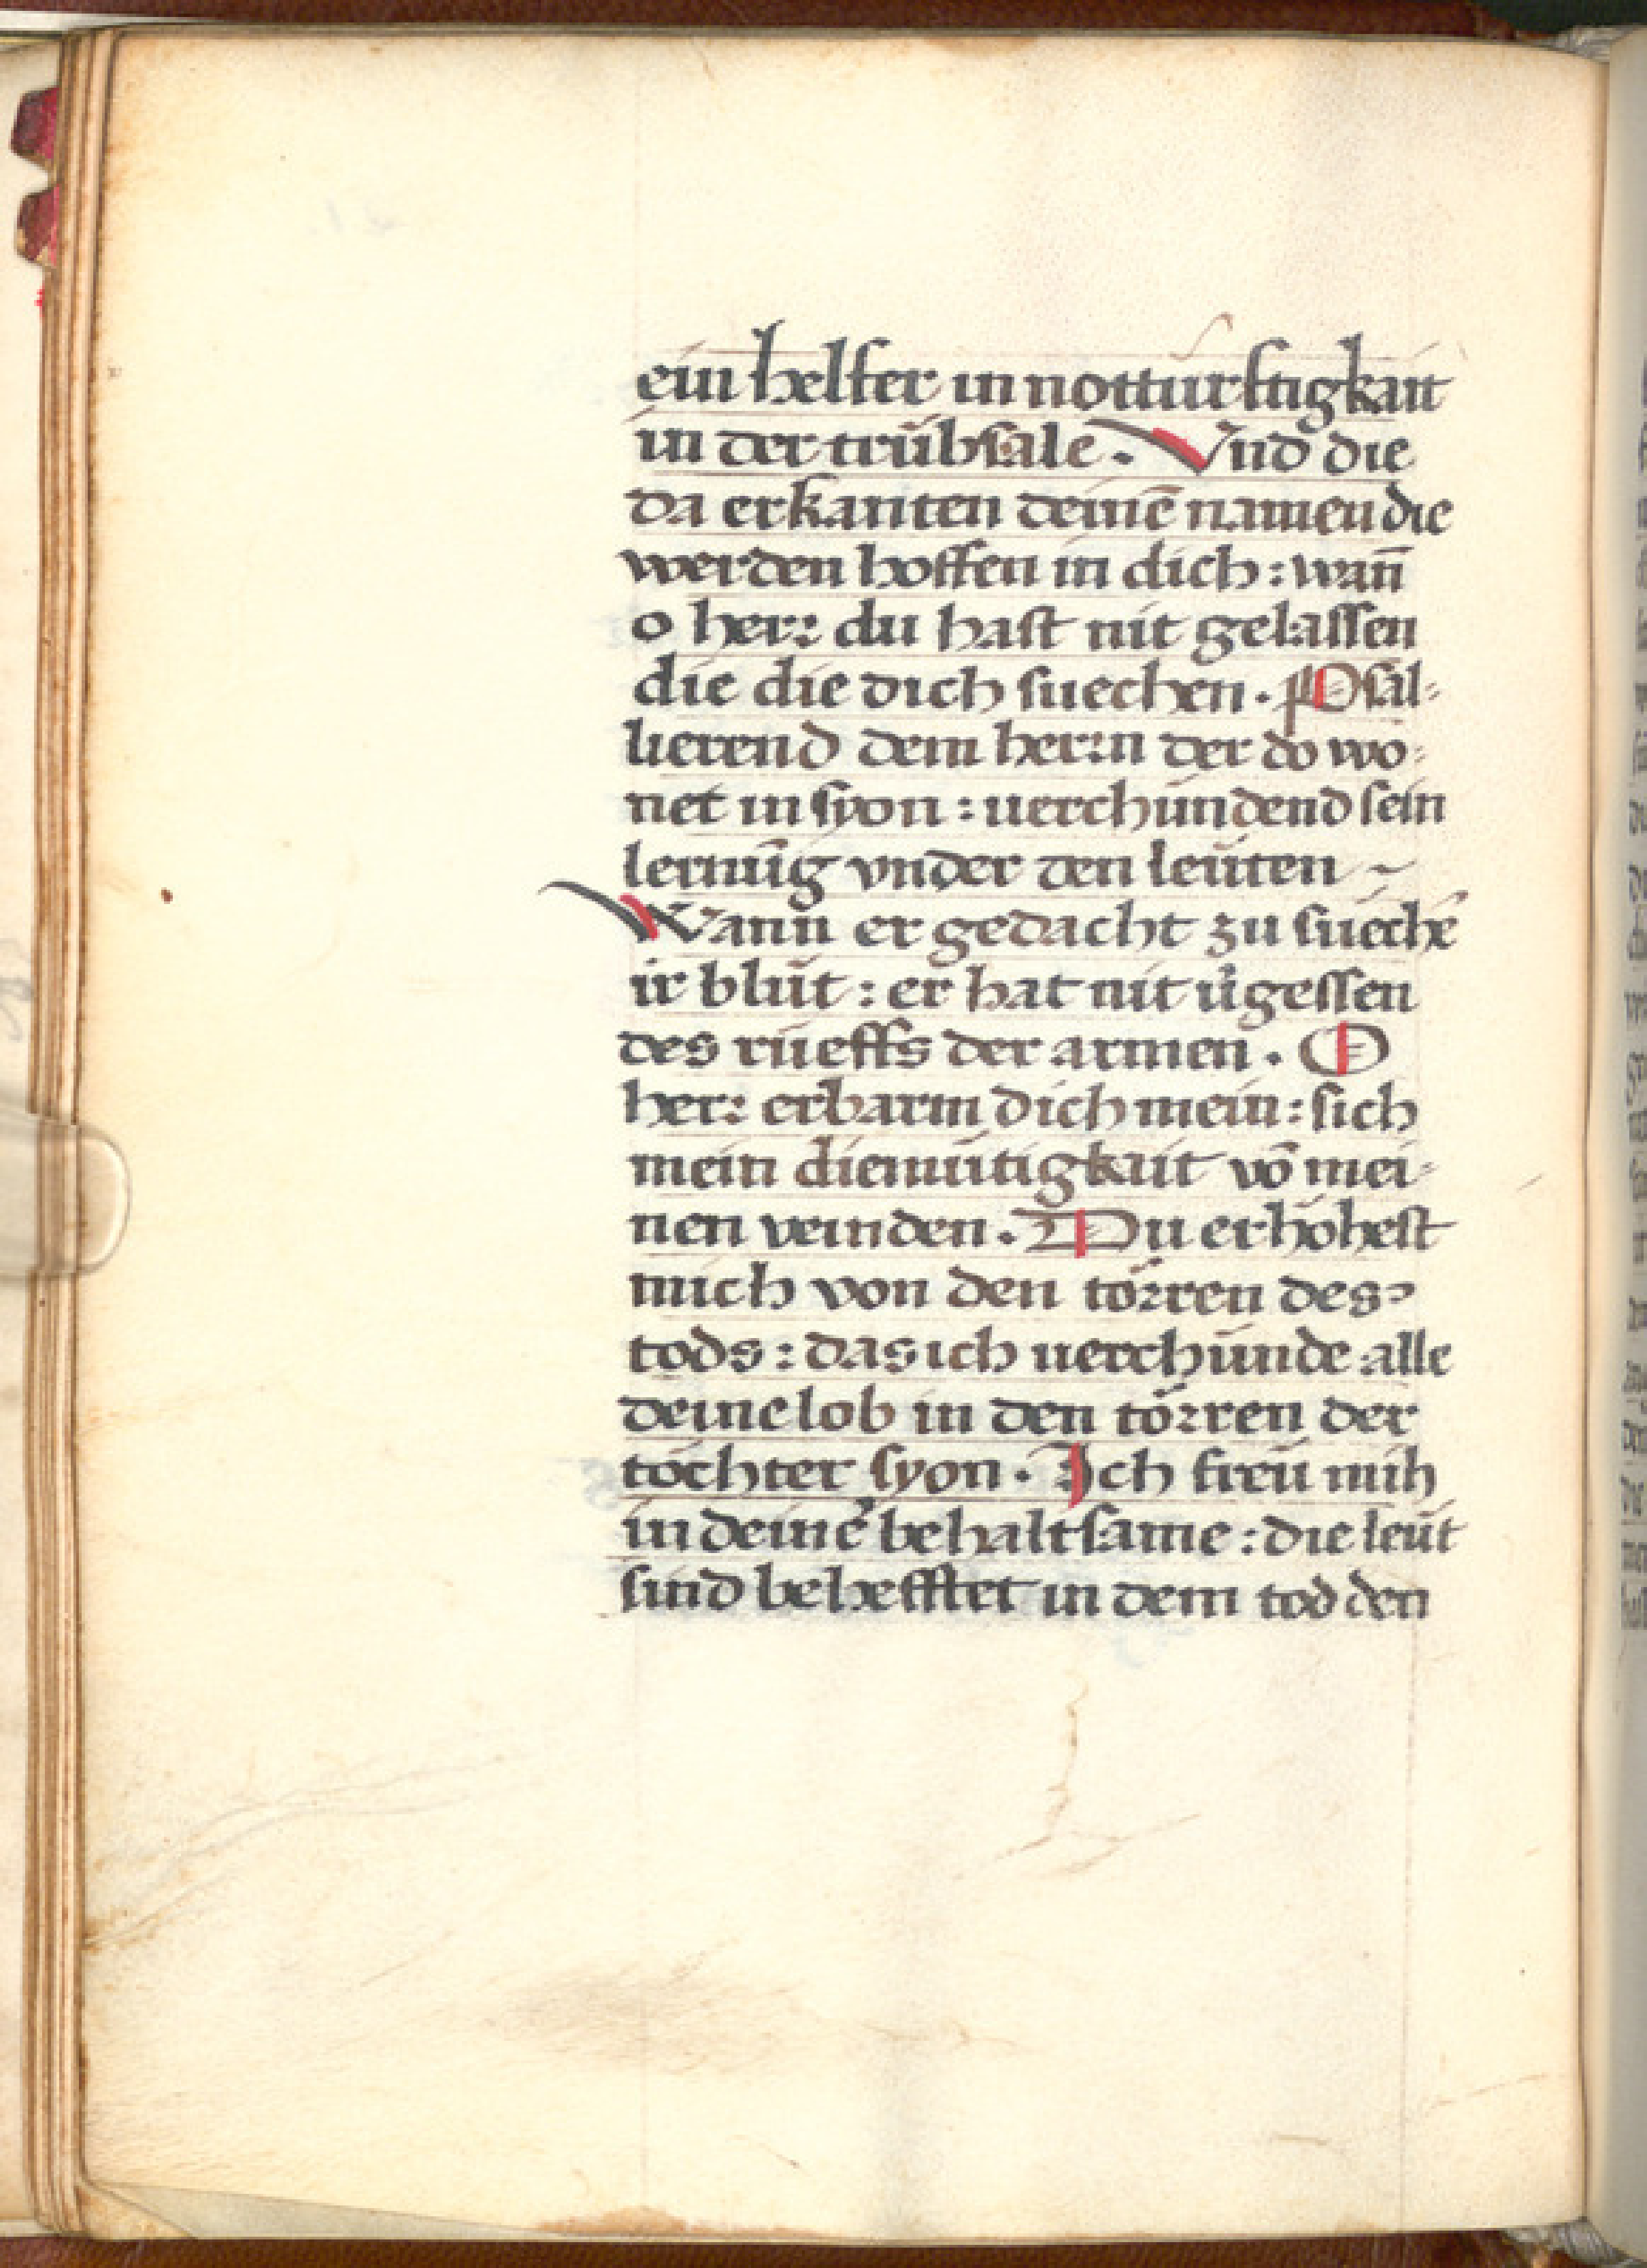 ein helfer in notturftigkait
in der trübsale. Vnd die
da erkanten deinē namen die
werden hoffen in dich: wañ
o herr du hast nit gelassen
die die dich suechen. Psal-
lierend dem herrn der do wo-
net in syon: uerchündend sein
lernūg vnder den leüten ~
Wann er gedacht zu suechē
ir blüt: er hat nit v̾gessen
des rüeffs der armen. O
herr erbarm dich mein: sich
mein diemütigkait vō mei-
nen veinden. Du erhöhest
mich von den törren des
tods: das ich uerchünde alle
deine lob in den törren der
töchter syon. Ich freü mih
in deine᷑ behaltsame: die leüt
sind behefftet in dem tod den